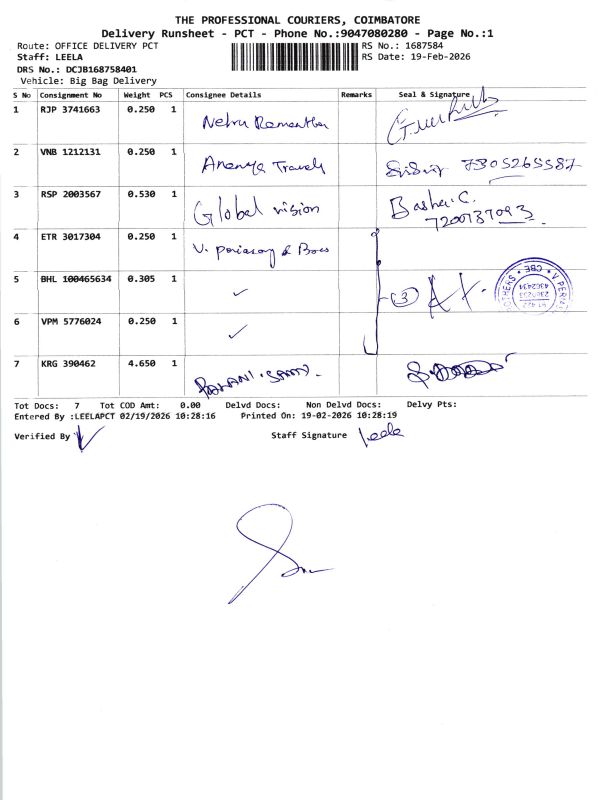 THE PROFESSIONAL COURIERS, COIMBATORE
Delivery Runsheet - PCT - Phone No.:9047080280 - Page No.:1
Route: OFFICE DELIVERY PCT
RS No.: 1687584
Staff: LEELA
RS Date: 19-Feb-2026
DRS No.: DCJB168758401
Vehicle: Big Bag Delivery
S No Consignment No Weight PCS Consignee Details Remarks Seal & Signature
1 RJP 3741663 0.250 1 Nehru
2 VNB 1212131 0.250 1 Ananya Travels 7305265587
3 RSP 2003567 0.530 1 Global vision Basha.C.
7200737093
4 ETR 3017304 0.250 1 V. Periasamy & Bros
5 BHL 100465634 0.305 1 ✓ 3
6 VPM 5776024 0.250 1 ✓
7 KRG 390462 4.650 1 PALANI.SAMY.
Tot Docs: 7 Tot COD Amt: 0.00 Delvd Docs: Non Delvd Docs: Delvy Pts:
Entered By :LEELAPCT 02/19/2026 10:28:16 Printed On: 19-02-2026 10:28:19
Verified By Staff Signature Leela